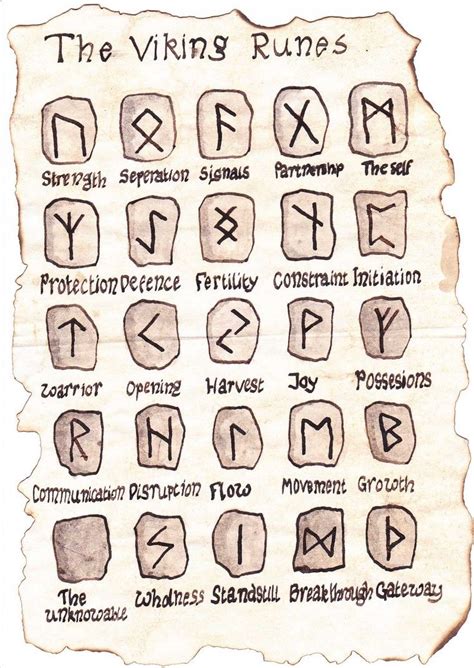 The Viking Runes
ᚢ ᛟ ᚨ ᚷ ᛗ
Strength Seperation Signals Partnership The self
ᛉ ᛇ ᛝ ᚾ ᛈ
Protection Defence Fertility Constraint Initiation
ᛏ ᚲ ᛃ ᚹ ᚠ
Warrior Opening Harvest Joy Possesions
ᚱ ᚺ ᛚ ᛖ ᛒ
Communication Disruption Flow Movement Growth
ᛊ ᛁ ᛞ ᚦ
The unknowable Wholness Standstill Breakthrough Gateway